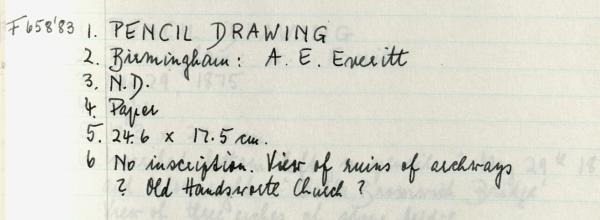 F658'83 1. PENCIL DRAWING
2. Birmingham: A. E. Everitt
3. N.D.
4. Paper
5. 24.6 x 17.5 cm.
6 No inscription. View of ruins of archways
? Old Handsworth Church ?